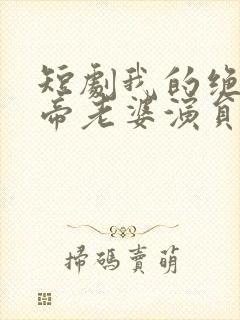 短劇我的绝
帝老婆演員
掃碼賣萌